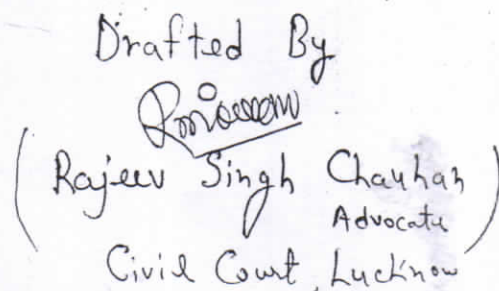 Drafted By
(Rajeev Singh Chauhan)
Advocate
Civil Court, Lucknow